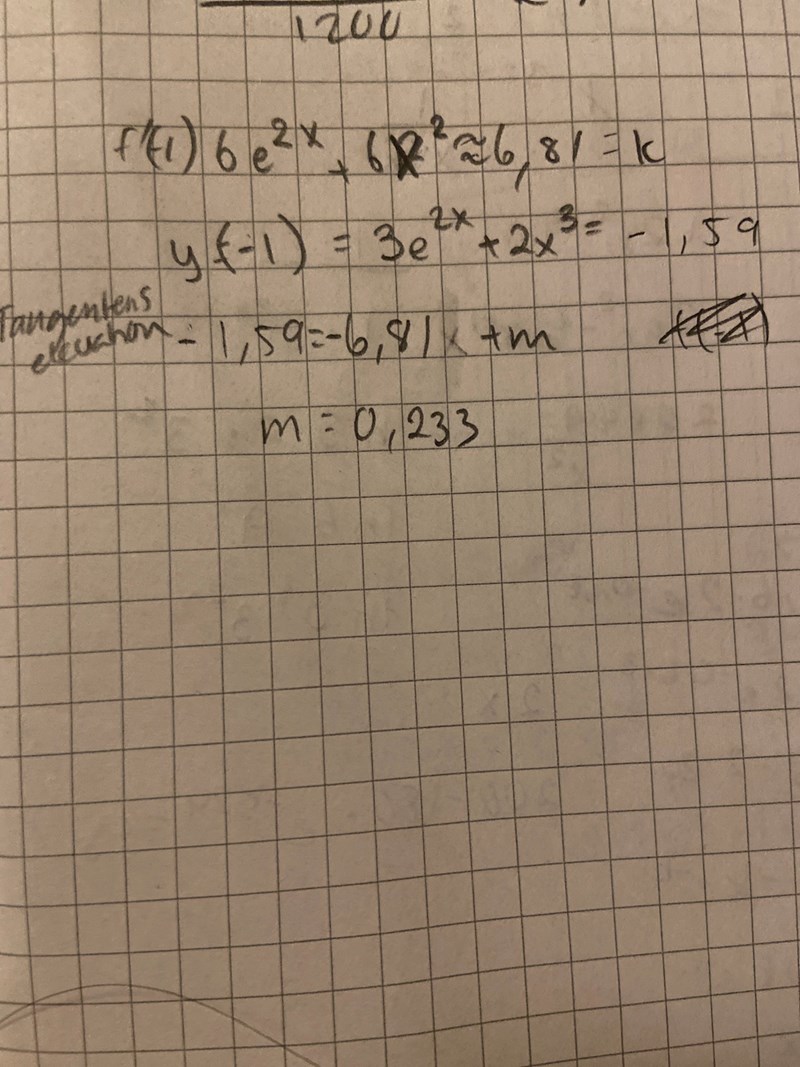 1200
f'(-1) 6e^2x + 6x^2 ≈ 6,81 = k
y(-1) = 3e^2x + 2x^3 = -1,59
Tangentens
ekvation -1,59 = -6,81 + m
m = 0,233